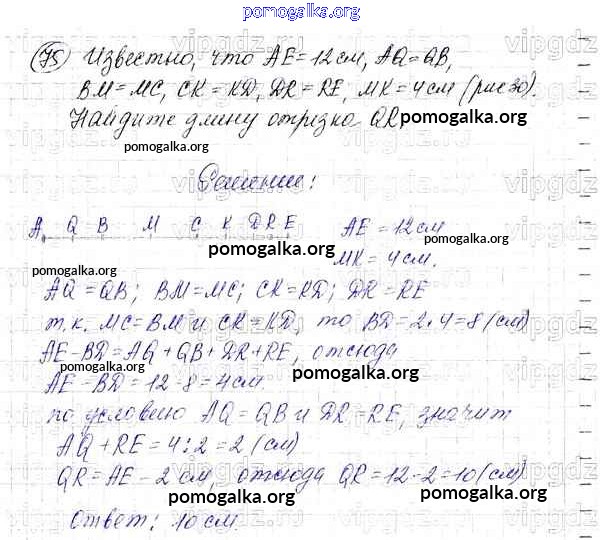 pomogalka.org
75 Известно, что AE = 12 см, AQ = QB,
BM = MC, CK = KD, DR = RE, MK = 4 см (рис 30).
Найдите длину отрезка QR pomogalka.org
pomogalka.org
Решение:
A Q B M C K D R E AE = 12 см
pomogalka.org pomogalka.org
MK = 4 см.
pomogalka.org
AQ = QB; BM = MC; CK = KD; DR = RE
т.к. MC = BM и CK = KD, то BD = 2·4 = 8 (см)
pomogalka.org
AE - BD = AQ + QB + DR + RE, отсюда
AE - BD = 12 - 8 = 4 см pomogalka.org
по условию AQ = QB и DR = RE, значит
AQ + RE = 4 : 2 = 2 (см) pomogalka.org
QR = AE - 2 см, отсюда QR = 12 - 2 = 10 (см)
pomogalka.org pomogalka.org
Ответ: 10 см.